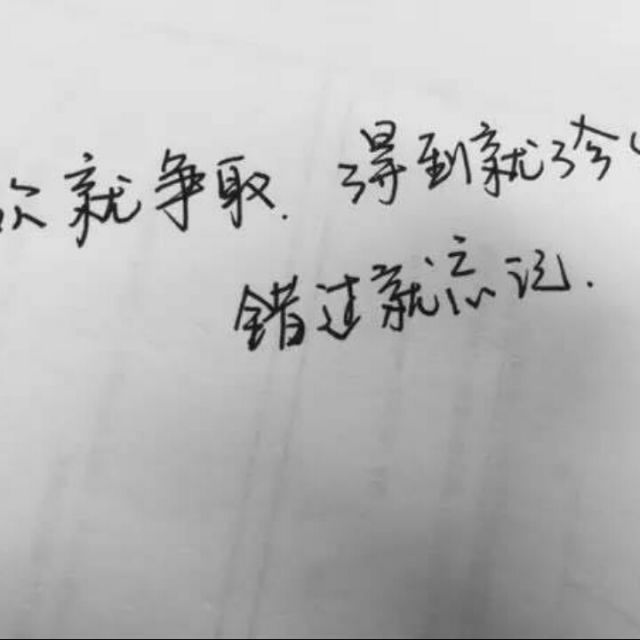 欢就争取.得到就珍
错过就忘记.